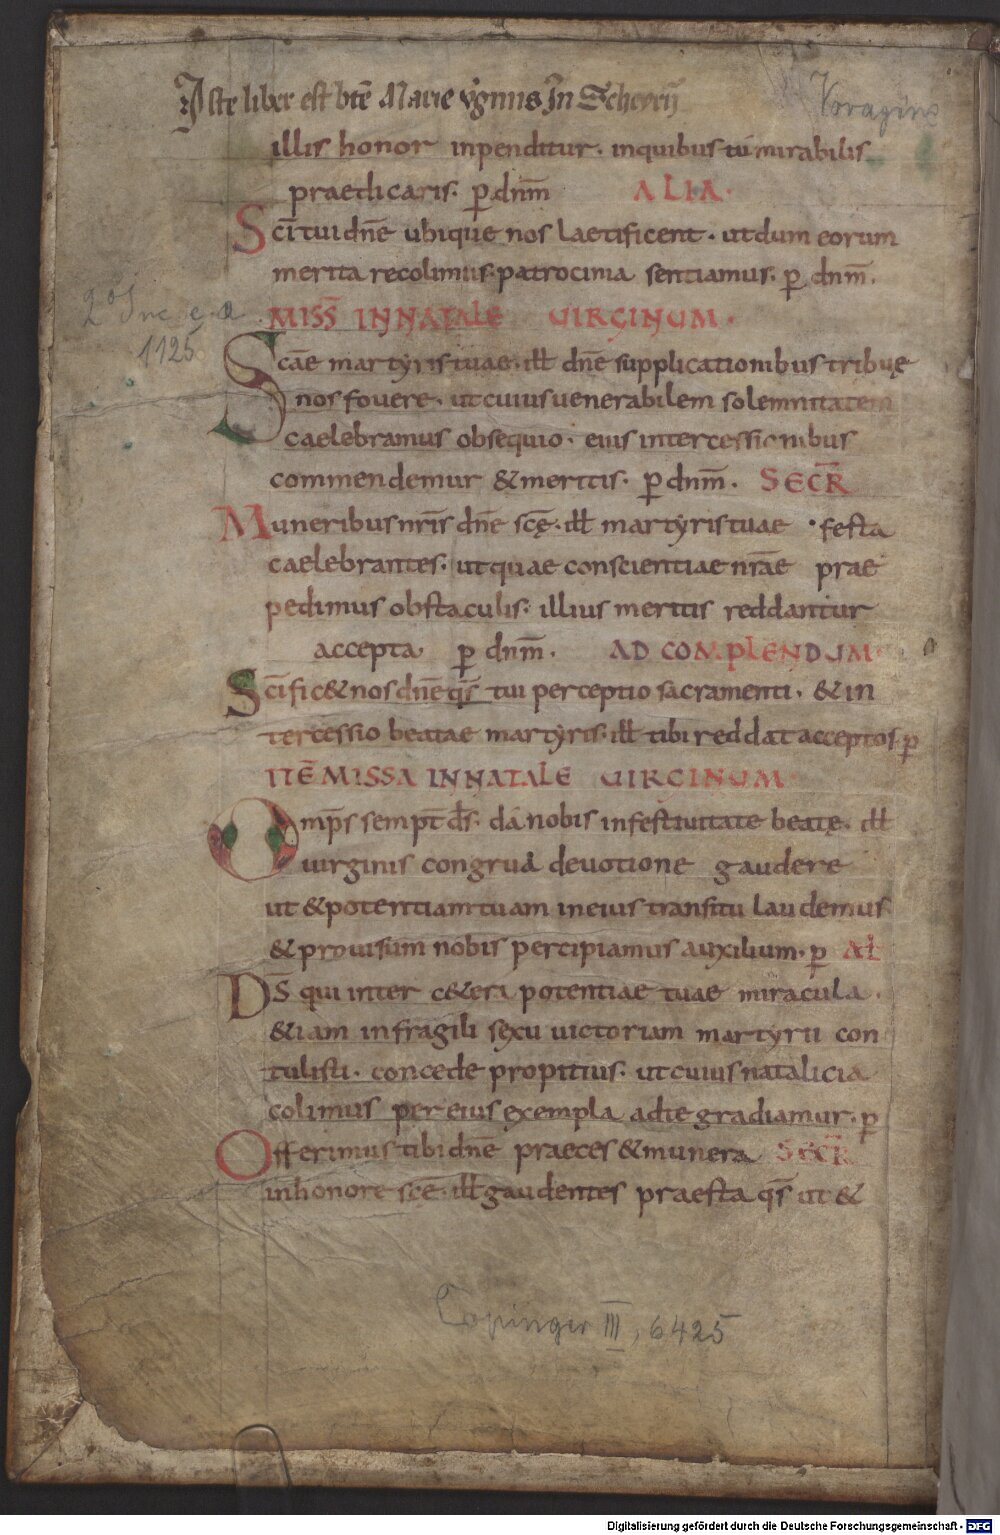 Iste liber est btē Marie v̾gīnis Jn Scheyrn̄
Voragine
illis honor inpenditur· inquibus tú mirabilis
praedicaris· ꝑ dnm̄ ALIA·
Scī tui dn̄e ubique nos laetificent· ut dum eorum
merita recolimus· patrocinia sentiamus· ꝑ dnm̄·
2° Inc. c. a.
1125
MISS̄ IN NATALE UIRGINUM·
Scāe martyris tuae· ill̄ dn̄e supplicationibus tribuę
nos fouere· ut cuius uenerabilem solemnitatem
caelebramus obsequio· eius intercessionibus
commendemur & meritis· ꝑ dnm̄· SECR̄
Muneribus nr̄is dn̄e scę̄· ill̄ martyris tuae · festa
caelebrantes· ut quae conscientiae nrāe prae
pedimus obstaculis· illius meritis reddantur
accepta· ꝑ dnm̄· AD COMPLENDUM·
Scīfic& nos dn̄e qs̄ tui perceptio sacramenti· & in
tercessio beatae martyris· ill̄ tibi reddat acceptos· ꝑ
ITĒ MISSA IN NATALE UIRGINUM·
Omp̄s sempt̄ ds̄· dá nobis in festiuitate beatę· ill̄
uirginis congruá deuotione gaudere
ut & potentiam tuam in eius transitu laudemus
& prouisum nobis percipiamus auxilium· ꝑ AL̄
Ds̄ qui inter c&era potentiae tuae miracula·
&iam in fragili sexu uictoriam martyrii con
tulisti· concede propitius· ut cuius natalicia
colimus per eius exempla ad te gradiamur· ꝑ
Offerimus tibi dn̄e praeces & munera SECR̄
in honore scę̄· ill̄ gaudentes praesta qs̄ ut &
Copinger III, 6425
Digitalisierung gefördert durch die Deutsche Forschungsgemeinschaft - DFG